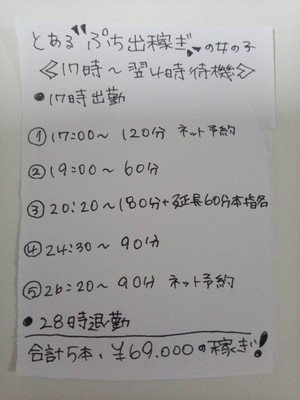 とある"ぷち出稼ぎ"の女の子
<17時~翌4時待機>
●17時出勤
①17:00~ 120分 ネット予約
②19:00~ 60分
③20:20~180分+延長60分本指名
④24:30~ 90分
⑤26:20~ 90分 ネット予約
●28時退勤
合計5本、¥69,000の稼ぎ!